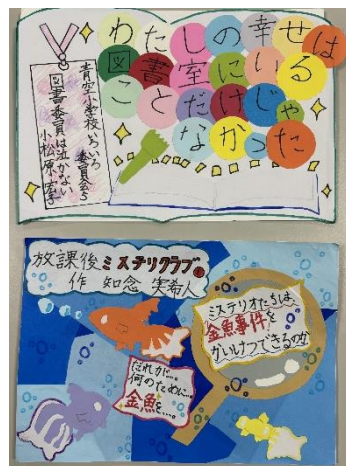 わたしの幸せは
図書室にいる
ことだけじゃ
なかった
青空小学校いろいろ
委員会5
図書委員は泣かない
小松原宏子
放課後ミステリクラブ
作 知念 実希人
ミステリオたちは、
金魚事件を
かいけつできるのか
だれが…。
何のために…。
金魚を…。